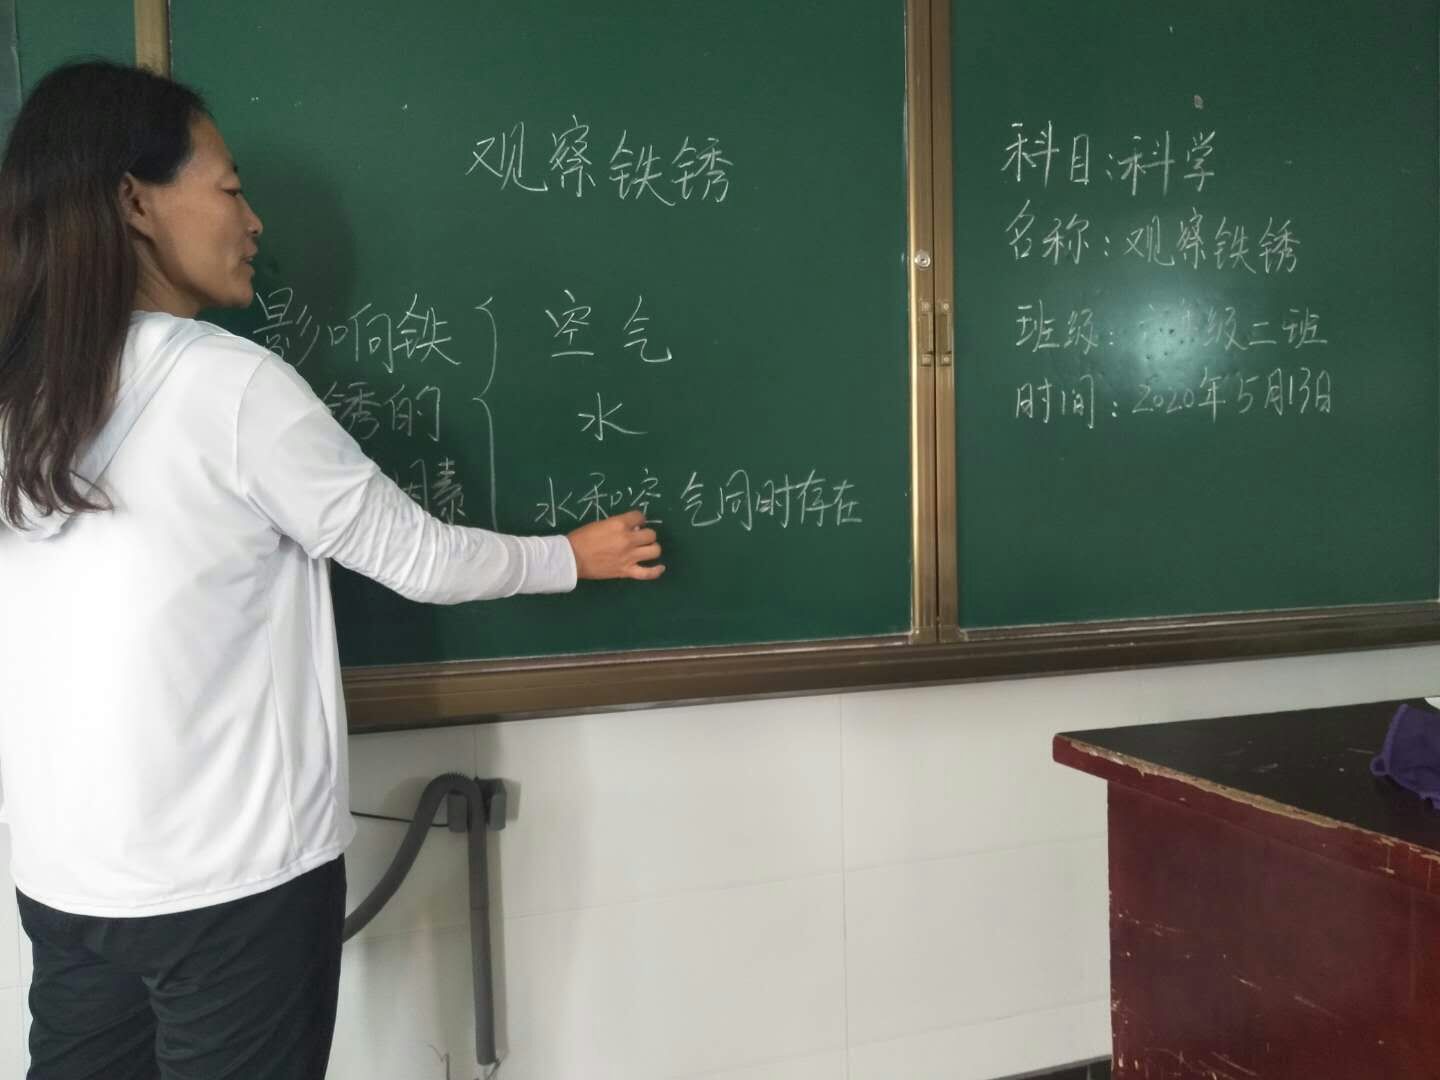 观察铁锈
影响铁
锈的
因素
空气
水
水和空气同时存在
科目:科学
名称:观察铁锈
班级: 级二班
时间:2020年5月13日